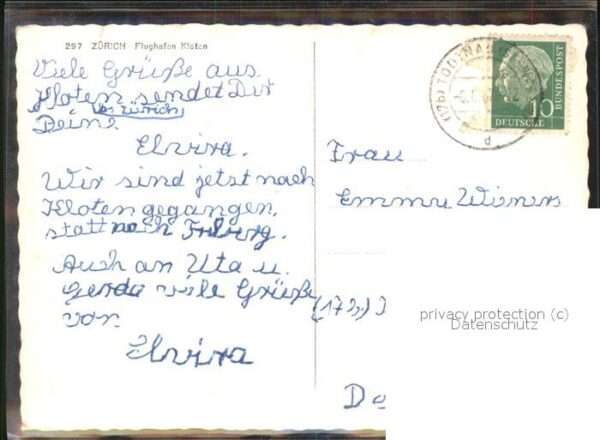 297 ZÜRICH Flughafen Kloten
Viele Grüße aus
Kloten sendet Dir
bei Zürich
Deine
Elvira.
Wir sind jetzt nach
Kloten gegangen,
statt nach
Auch an Uta u.
Gerda viele Grüße
von
Elvira
10
DEUTSCHE
BUNDESPOST
d
Frau
Emma
privacy protection (c)
Datenschutz